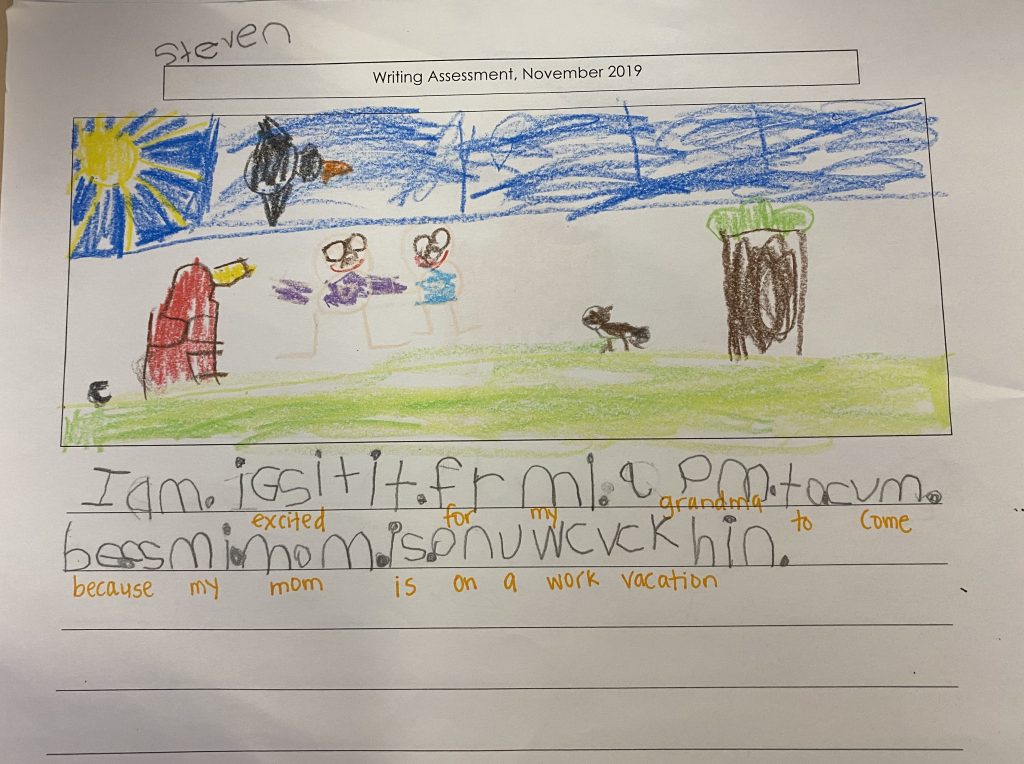 Steven
Writing Assessment, November 2019
I am. iGsitit. fr mi. a PM. to cum.
excited for my grandma to come
becss mi. mom. is. onu wcvck hin.
because my mom is on a work vacation